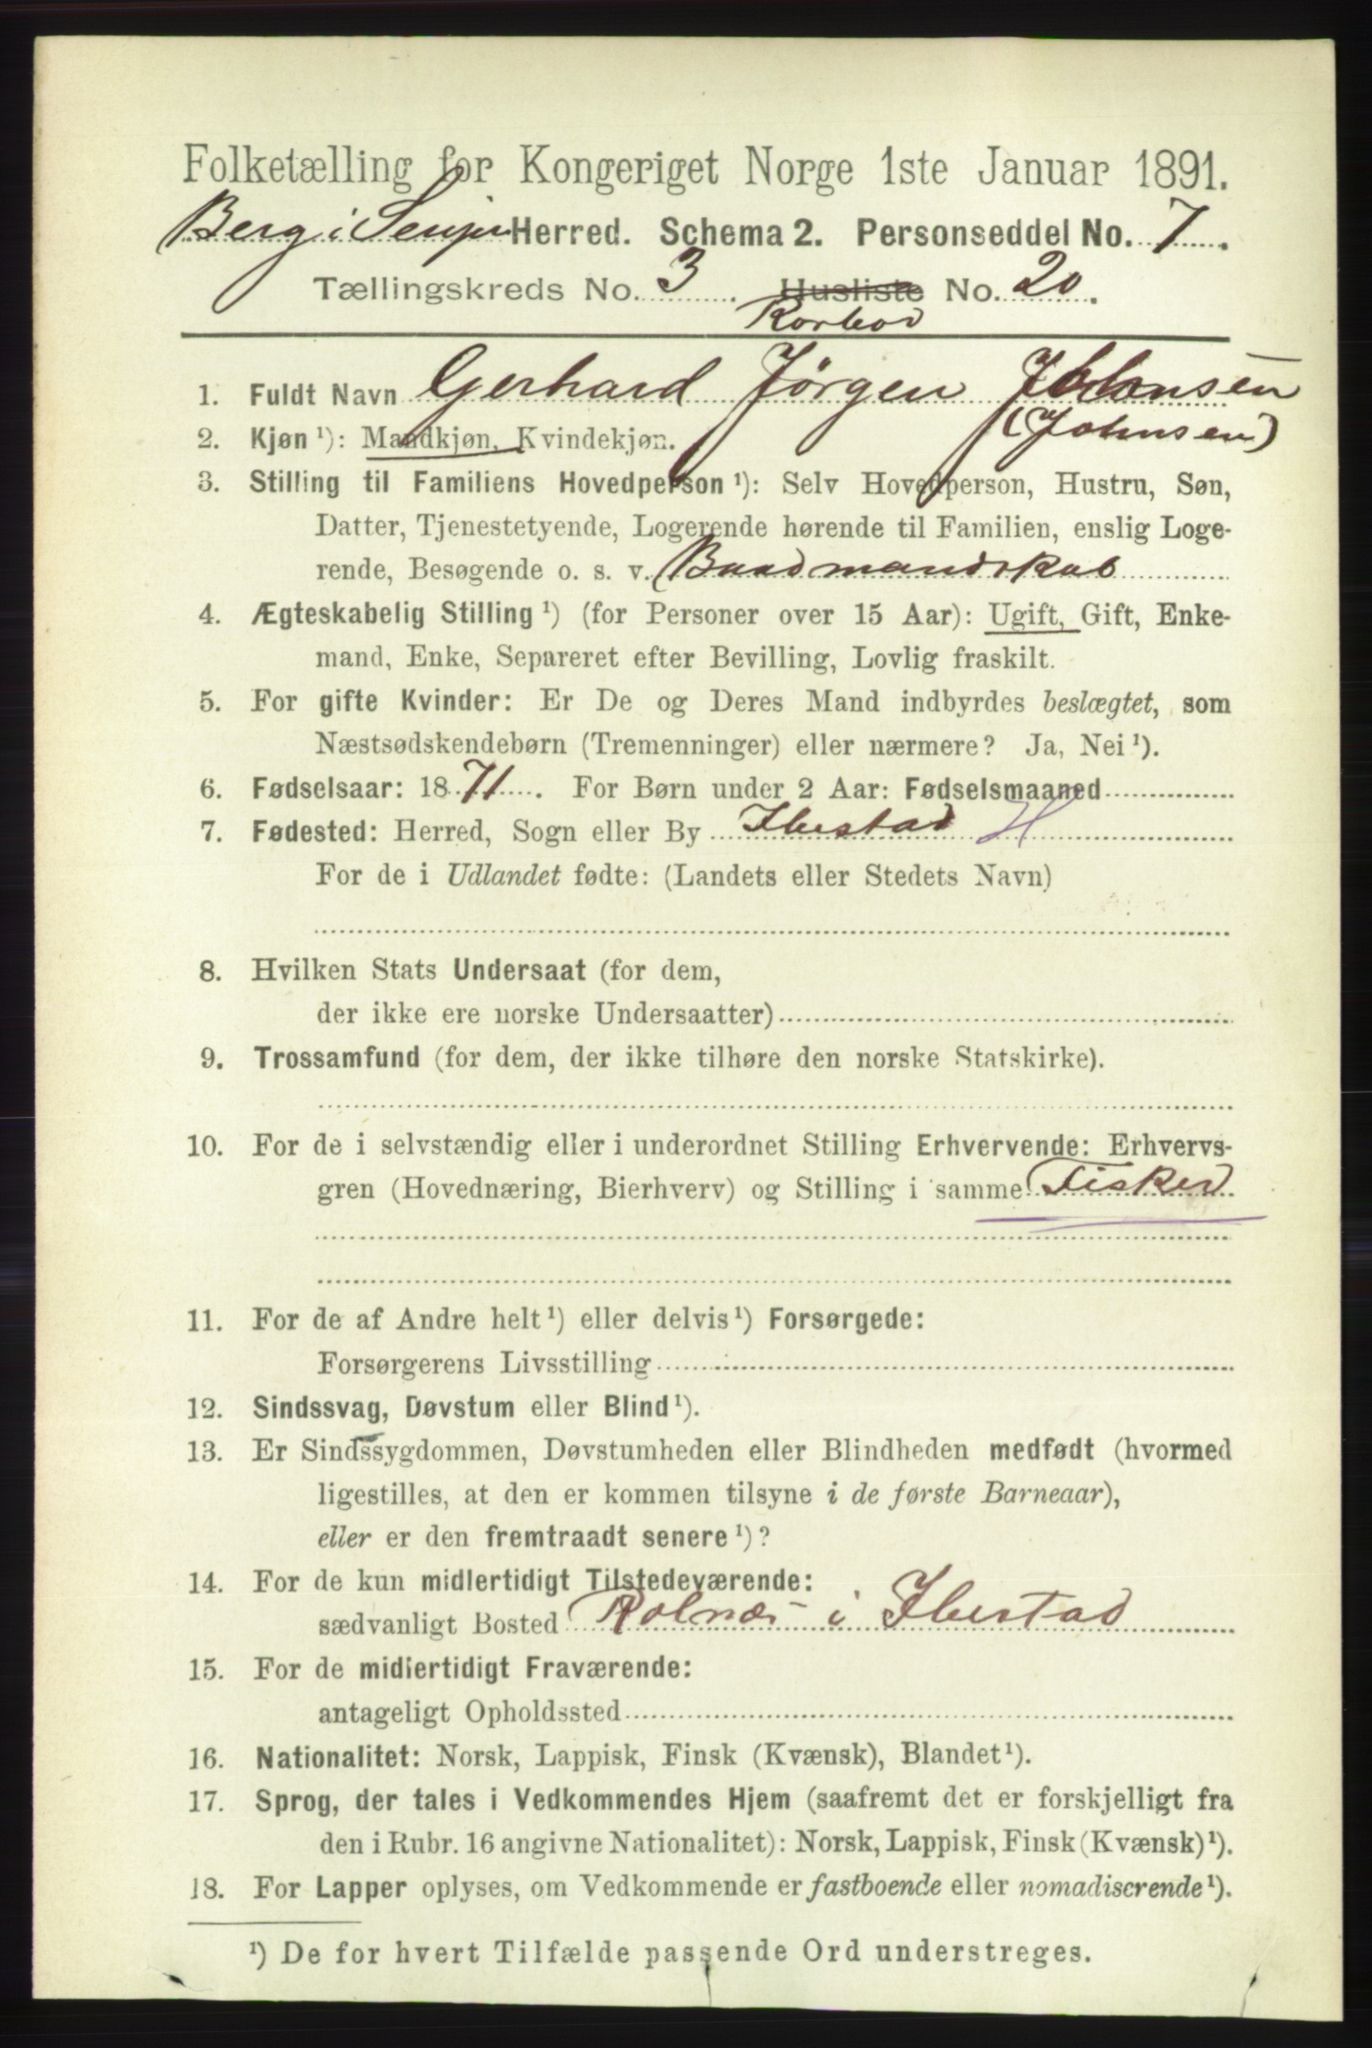 Folketælling for Kongeriget Norge 1ste Januar 1891.
Berg i Senjen Herred. Schema 2. Personseddel No. 7.
Tællingskreds No. 3. Husliste No. 20.
Rorbod
1. Fuldt Navn Gerhard Jørgen Johnsen
2. Kjøn ¹): Mandkjøn, Kvindekjøn. (Johnsen)
3. Stilling til Familiens Hovedperson ¹): Selv Hovedperson, Hustru, Søn,
Datter, Tjenestetyende, Logerende hørende til Familien, enslig Loge-
rende, Besøgende o. s. v. Baadmandskab
4. Ægteskabelig Stilling ¹) (for Personer over 15 Aar): Ugift, Gift, Enke-
mand, Enke, Separeret efter Bevilling, Lovlig fraskilt.
5. For gifte Kvinder: Er De og Deres Mand indbyrdes beslægtet, som
Næstsødskendebørn (Tremenninger) eller nærmere? Ja, Nei ¹).
6. Fødselsaar: 1871. For Børn under 2 Aar: Fødselsmaaned
7. Fødested: Herred, Sogn eller By Ibestad H
For de i Udlandet fødte: (Landets eller Stedets Navn)
8. Hvilken Stats Undersaat (for dem,
der ikke ere norske Undersaatter)
9. Trossamfund (for dem, der ikke tilhøre den norske Statskirke).
10. For de i selvstændig eller i underordnet Stilling Erhvervende: Erhvervs-
gren (Hovednæring, Bierhverv) og Stilling i samme Fisker
11. For de af Andre helt ¹) eller delvis ¹) Forsørgede:
Forsørgerens Livsstilling
12. Sindssvag, Døvstum eller Blind ¹).
13. Er Sindssygdommen, Døvstumheden eller Blindheden medfødt (hvormed
ligestilles, at den er kommen tilsyne i de første Barneaar),
eller er den fremtraadt senere ¹)?
14. For de kun midlertidigt Tilstedeværende:
sædvanligt Bosted Rolnæs i Ibestad
15. For de midlertidigt Fraværende:
antageligt Opholdssted
16. Nationalitet: Norsk, Lappisk, Finsk (Kvænsk), Blandet ¹).
17. Sprog, der tales i Vedkommendes Hjem (saafremt det er forskjelligt fra
den i Rubr. 16 angivne Nationalitet): Norsk, Lappisk, Finsk (Kvænsk) ¹).
18. For Lapper oplyses, om Vedkommende er fastboende eller nomadiserende ¹).
¹) De for hvert Tilfælde passende Ord understreges.